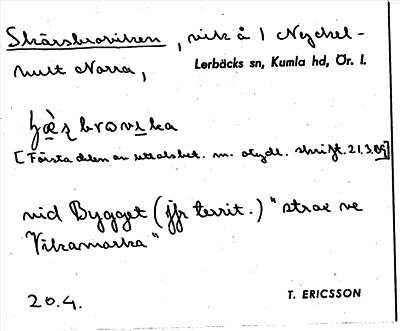 Skärsbroviken, vik å 1 Nyckel-
hult Norra, Lerbäcks sn, Kumla hd, Ör. l.
[Första delen av uttalsbet. m. otydl. skrift. 21.3.09]
vid Bygget (jfr territ.) "strax ve
Vikamarka"
20.4. T. ERICSSON